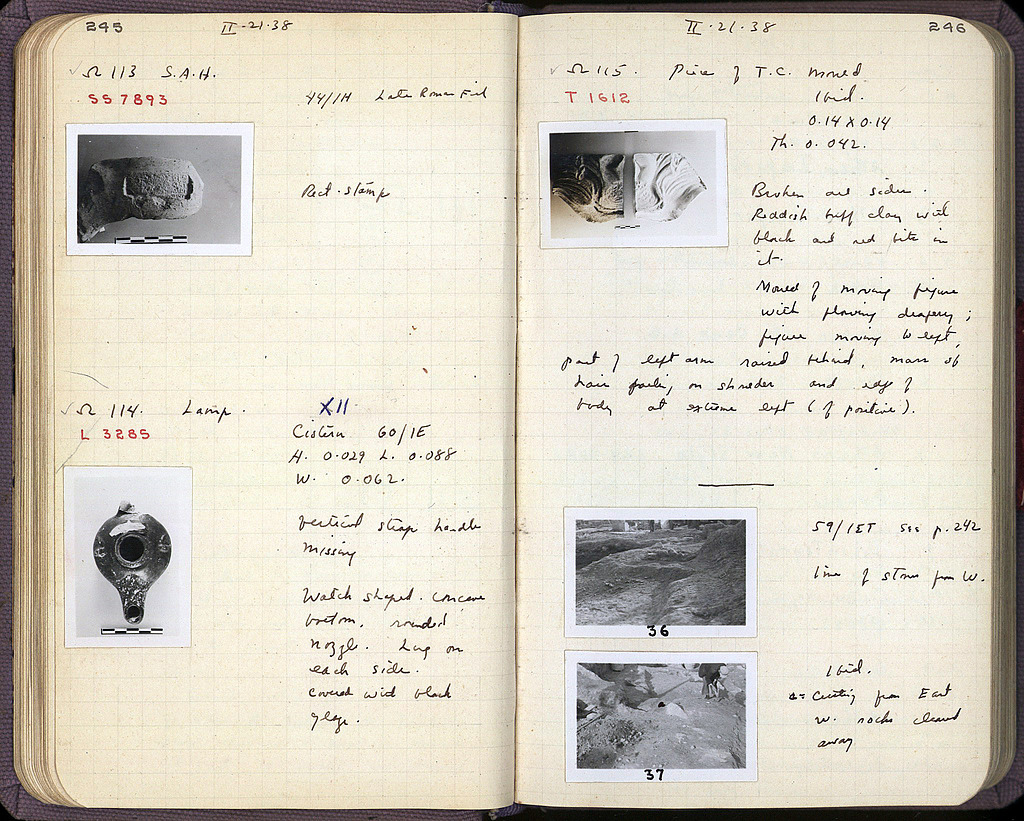 245
II·21·38
Ω 113 S.A.H.
SS 7893
44/IH Late Roman Fill
Rect. stamp
Ω 114. Lamp.
L 3285
XII
Cistern 60/IE
H. 0.029 L. 0.088
W. 0.062.
Vertical strap handle
missing
Watch shaped. Concave
bottom, rounded
nozzle. Lug on
each side.
Covered with black
glaze.
II·21·38
246
Ω 115. Piece of T.C. Mould
T 1612
Ibid.
0.14 X 0.14
Th. 0.042.
Broken all sides.
Reddish buff clay with
black and red bits in
it.
Mould of moving figure
with flowing drapery;
figure moving to left,
part of left arm raised behind, mass of
hair on shoulder and edge of
body at extreme left (of positive).
59/IET See p. 242
line of stones from W.
36
Ibid.
Cutting from East
w. rocks cleared
away
37